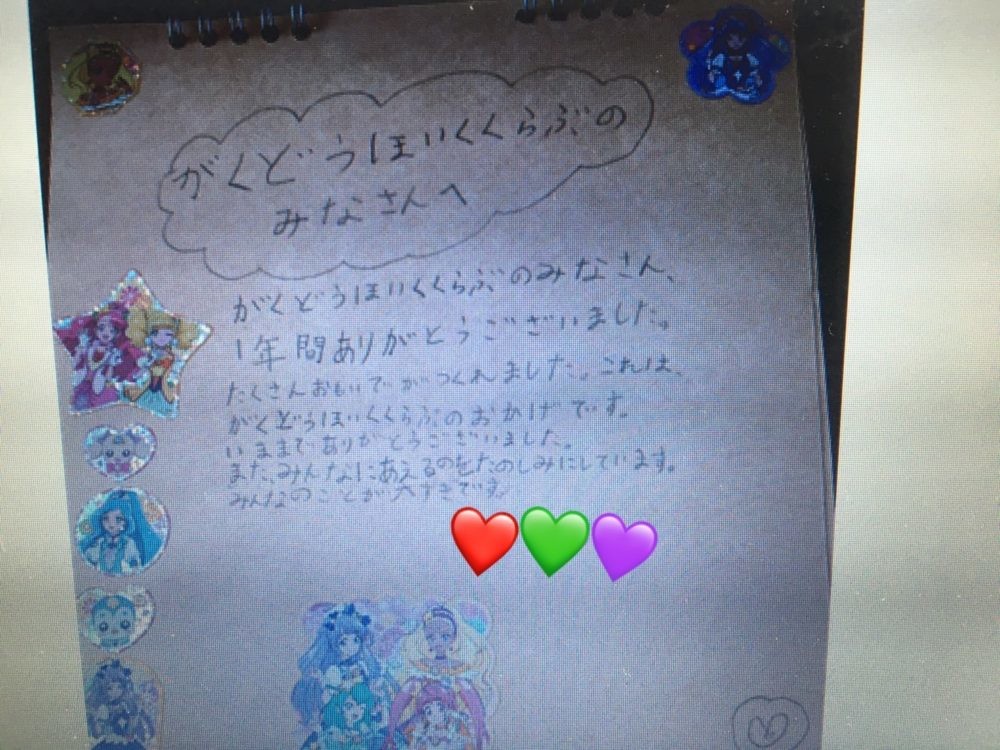 がくどうほいくくらぶの
みなさんへ
がくどうほいくくらぶのみなさん、
1年間ありがとうございました。
たくさんおもいでがつくれました。これは、
がくどうほいくくらぶのおかげです。
いままでありがとうございました。
また、みんなにあえるのをたのしみにしています。
みんなのことが大すきです。